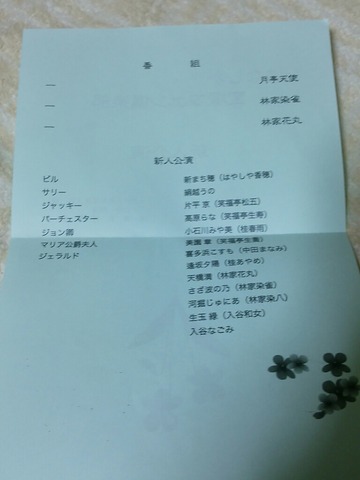 番 組
一 月亭天使
一 林家染雀
一 林家花丸
新人公演
ビル 新まち穂（はやしや香穂）
サリー 鍋越うの
ジャッキー 片平 京（笑福亭松五）
パーチェスター 高原らな（笑福亭生寿）
ジョン卿 小石川みや美（桂春雨）
マリア公爵夫人 美園 章（笑福亭生喬）
ジェラルド 喜多浜こすも（中田まなみ）
逢坂夕陽（桂あやめ）
天橋満（林家花丸）
さざ波の乃（林家染雀）
河掘じゅにあ（林家染八）
生玉 緑（入谷和女）
入谷なごみ